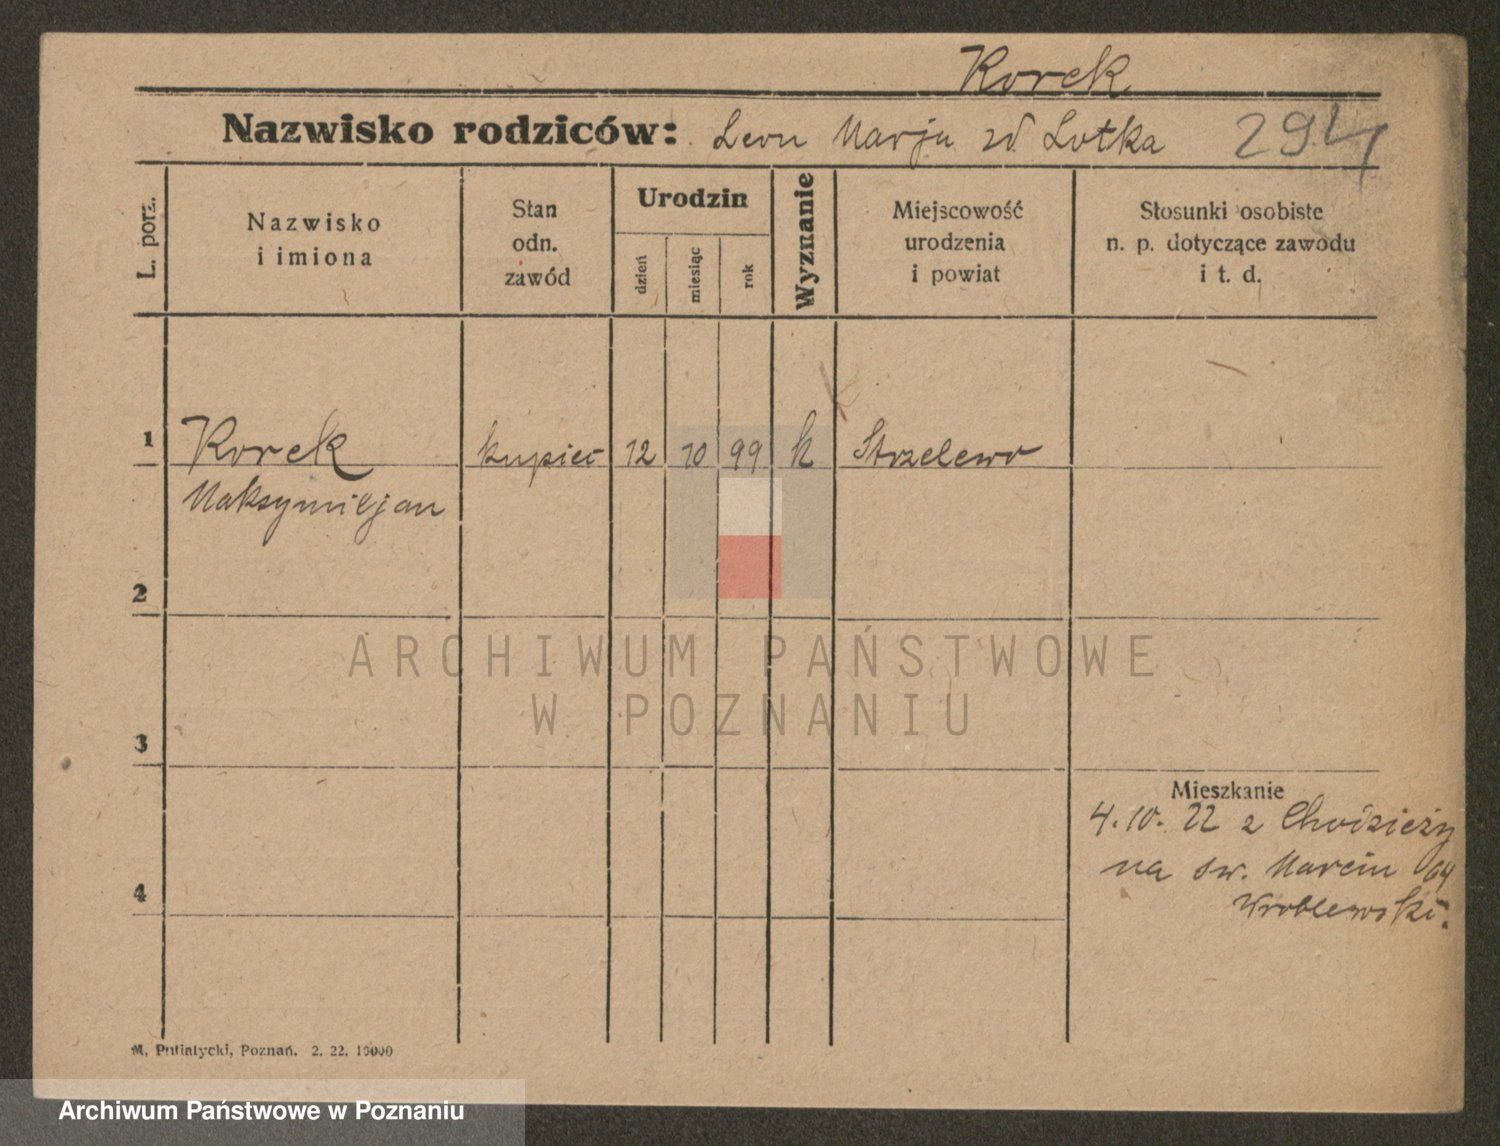 Korek
Nazwisko rodziców: Leon Marja zd Lotka 294
L. porz.
Nazwisko
i imiona
Stan
odn.
zawód
Urodzin
dzień
miesiąc
rok
Wyznanie
Miejscowość
urodzenia
i powiat
Stosunki osobiste
n. p. dotyczące zawodu
i t. d.
1 Korek kupiec 12 10 99 k Strzelewo
Maksymiljan
2
3
Mieszkanie
4.10.22 z Chodzieży
na św. Marcin 64
4
Wroblewski.
M. Putiatycki, Poznań. 2. 22. 10000
ARCHIWUM PAŃSTWOWE
W POZNANIU
Archiwum Państwowe w Poznaniu